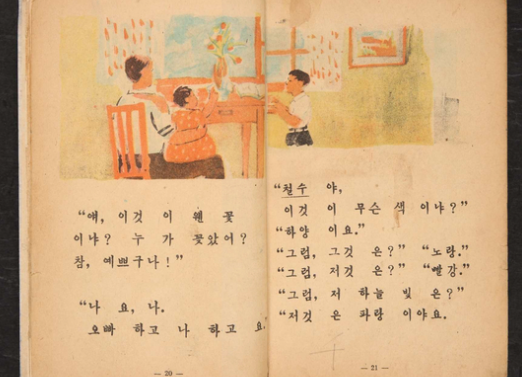 “얘, 이것 이 웬 꽃
이냐? 누 가 꽂았어?
참, 예쁘구나!”
“나 요, 나.
오빠 하고 나 하고 요.”
— 20 —
“철수 야,
이것 이 무슨 색 이냐?”
“하양 이요.”
“그럼, 그것 은?” “노랑.”
“그럼, 저것 은?” “빨강.”
“그럼, 저 하늘 빛 은?”
“저것 은 파랑 이야요.
— 21 —